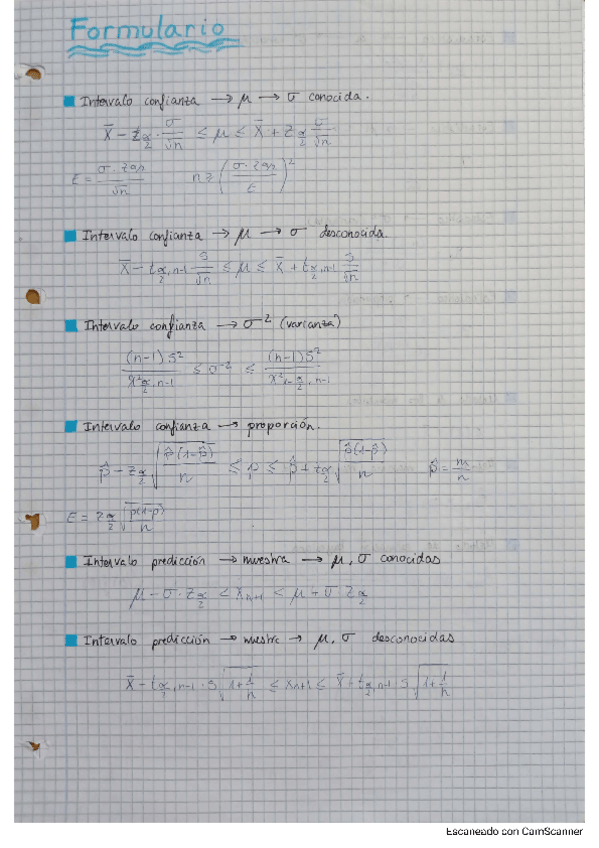 Formulario
Intervalo confianza → μ → σ conocida.
X̄ - z α/2 · σ/√n ≤ μ ≤ X̄ + z α/2 σ/√n
E = σ · z α/2 / √n    n ≥ (σ · z α/2 / E)²
Intervalo confianza → μ → σ desconocida
X̄ - t α/2, n-1 · S/√n ≤ μ ≤ X̄ + t α/2, n-1 S/√n
Intervalo confianza → σ² (varianza)
(n-1)S² / χ² α/2, n-1 ≤ σ² ≤ (n-1)S² / χ² 1-α/2, n-1
Intervalo confianza → proporción.
p̂ - z α/2 √(p̂(1-p̂)/n) ≤ p ≤ p̂ + z α/2 √(p̂(1-p̂)/n)    p̂ = m/n
E = z α/2 √(p(1-p)/n)
Intervalo predicción → muestra → μ, σ conocidas
μ - σ · z α/2 < Xn+1 < μ + σ z α/2
Intervalo predicción → muestra → μ, σ desconocidas
X̄ - t α/2, n-1 · S √(1+1/n) ≤ Xn+1 ≤ X̄ + t α/2, n-1 · S √(1+1/n)
Escaneado con CamScanner